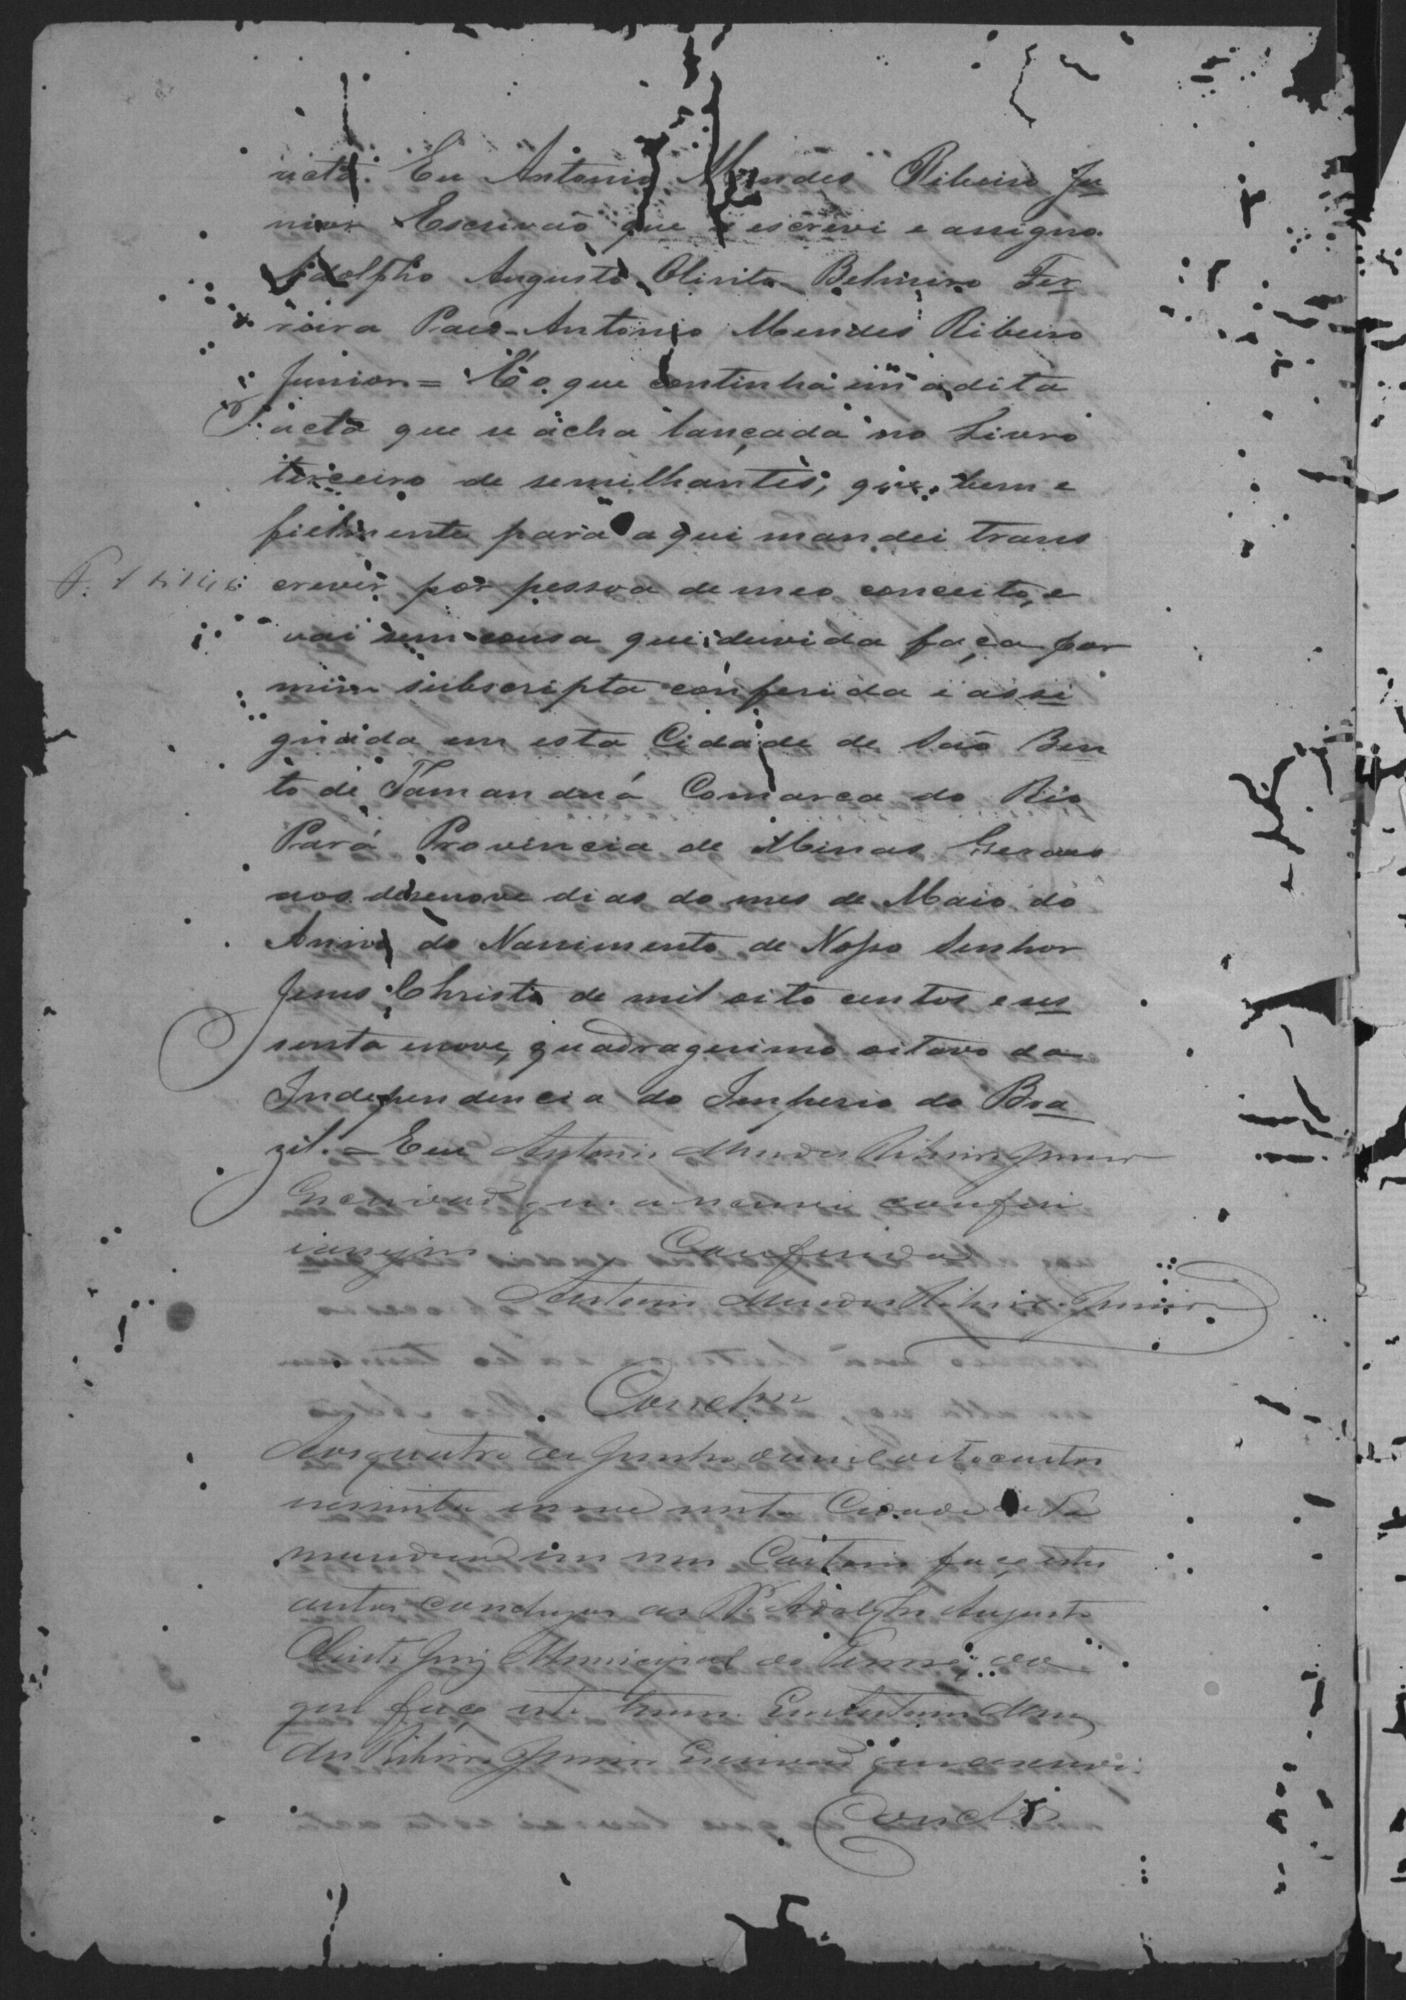 acta. Eu Antonio Mendes Ribeiro Ju
nior Escrivaõ que o escrevi e assigno.
Adolpho Augusto Olinto Belmiro Fer
reira Paes Antonio Mendes Ribeiro
Junior = É o que continha em a dita
acta que se acha lançada no Livro
terceiro de semilhantes, que bem e
fielmente para aqui mandei trans
crever por pessoa de meo conceito, e
vai sem cousa que duvida faça por
mim subscripta conferida e assi
gnada em esta Cidade de Saõ Ben
to de Tamanduá Comarca do Rio
Pará Provincia de Minas Geraes
aos desenove dias do mes de Maio do
Anno do Nascimento de Nosso Senhor
Jesus Christo de mil oito centos e ses
senta e nove, quadragesimo oitavo da
Independencia do Imperio do Bra
zil. = Eu Antonio Mendes Ribeiro Junior
Escrivaõ que a escrevi conferi
e assigno. Conferida
Antonio Mendes Ribeiro Junior
Concl.am
Aos quatro de Junho de mil oito centos
sessenta e nove nesta Cidade de Ta
manduá em meu Cartorio faço estes
autos conclusos ao Dr. Adolpho Augusto
Olinto Juiz Municipal do Termo; do
que faço este termo. Eu Antonio Men
des Ribeiro Junior Escrivaõ que escrevi.
Concl.os